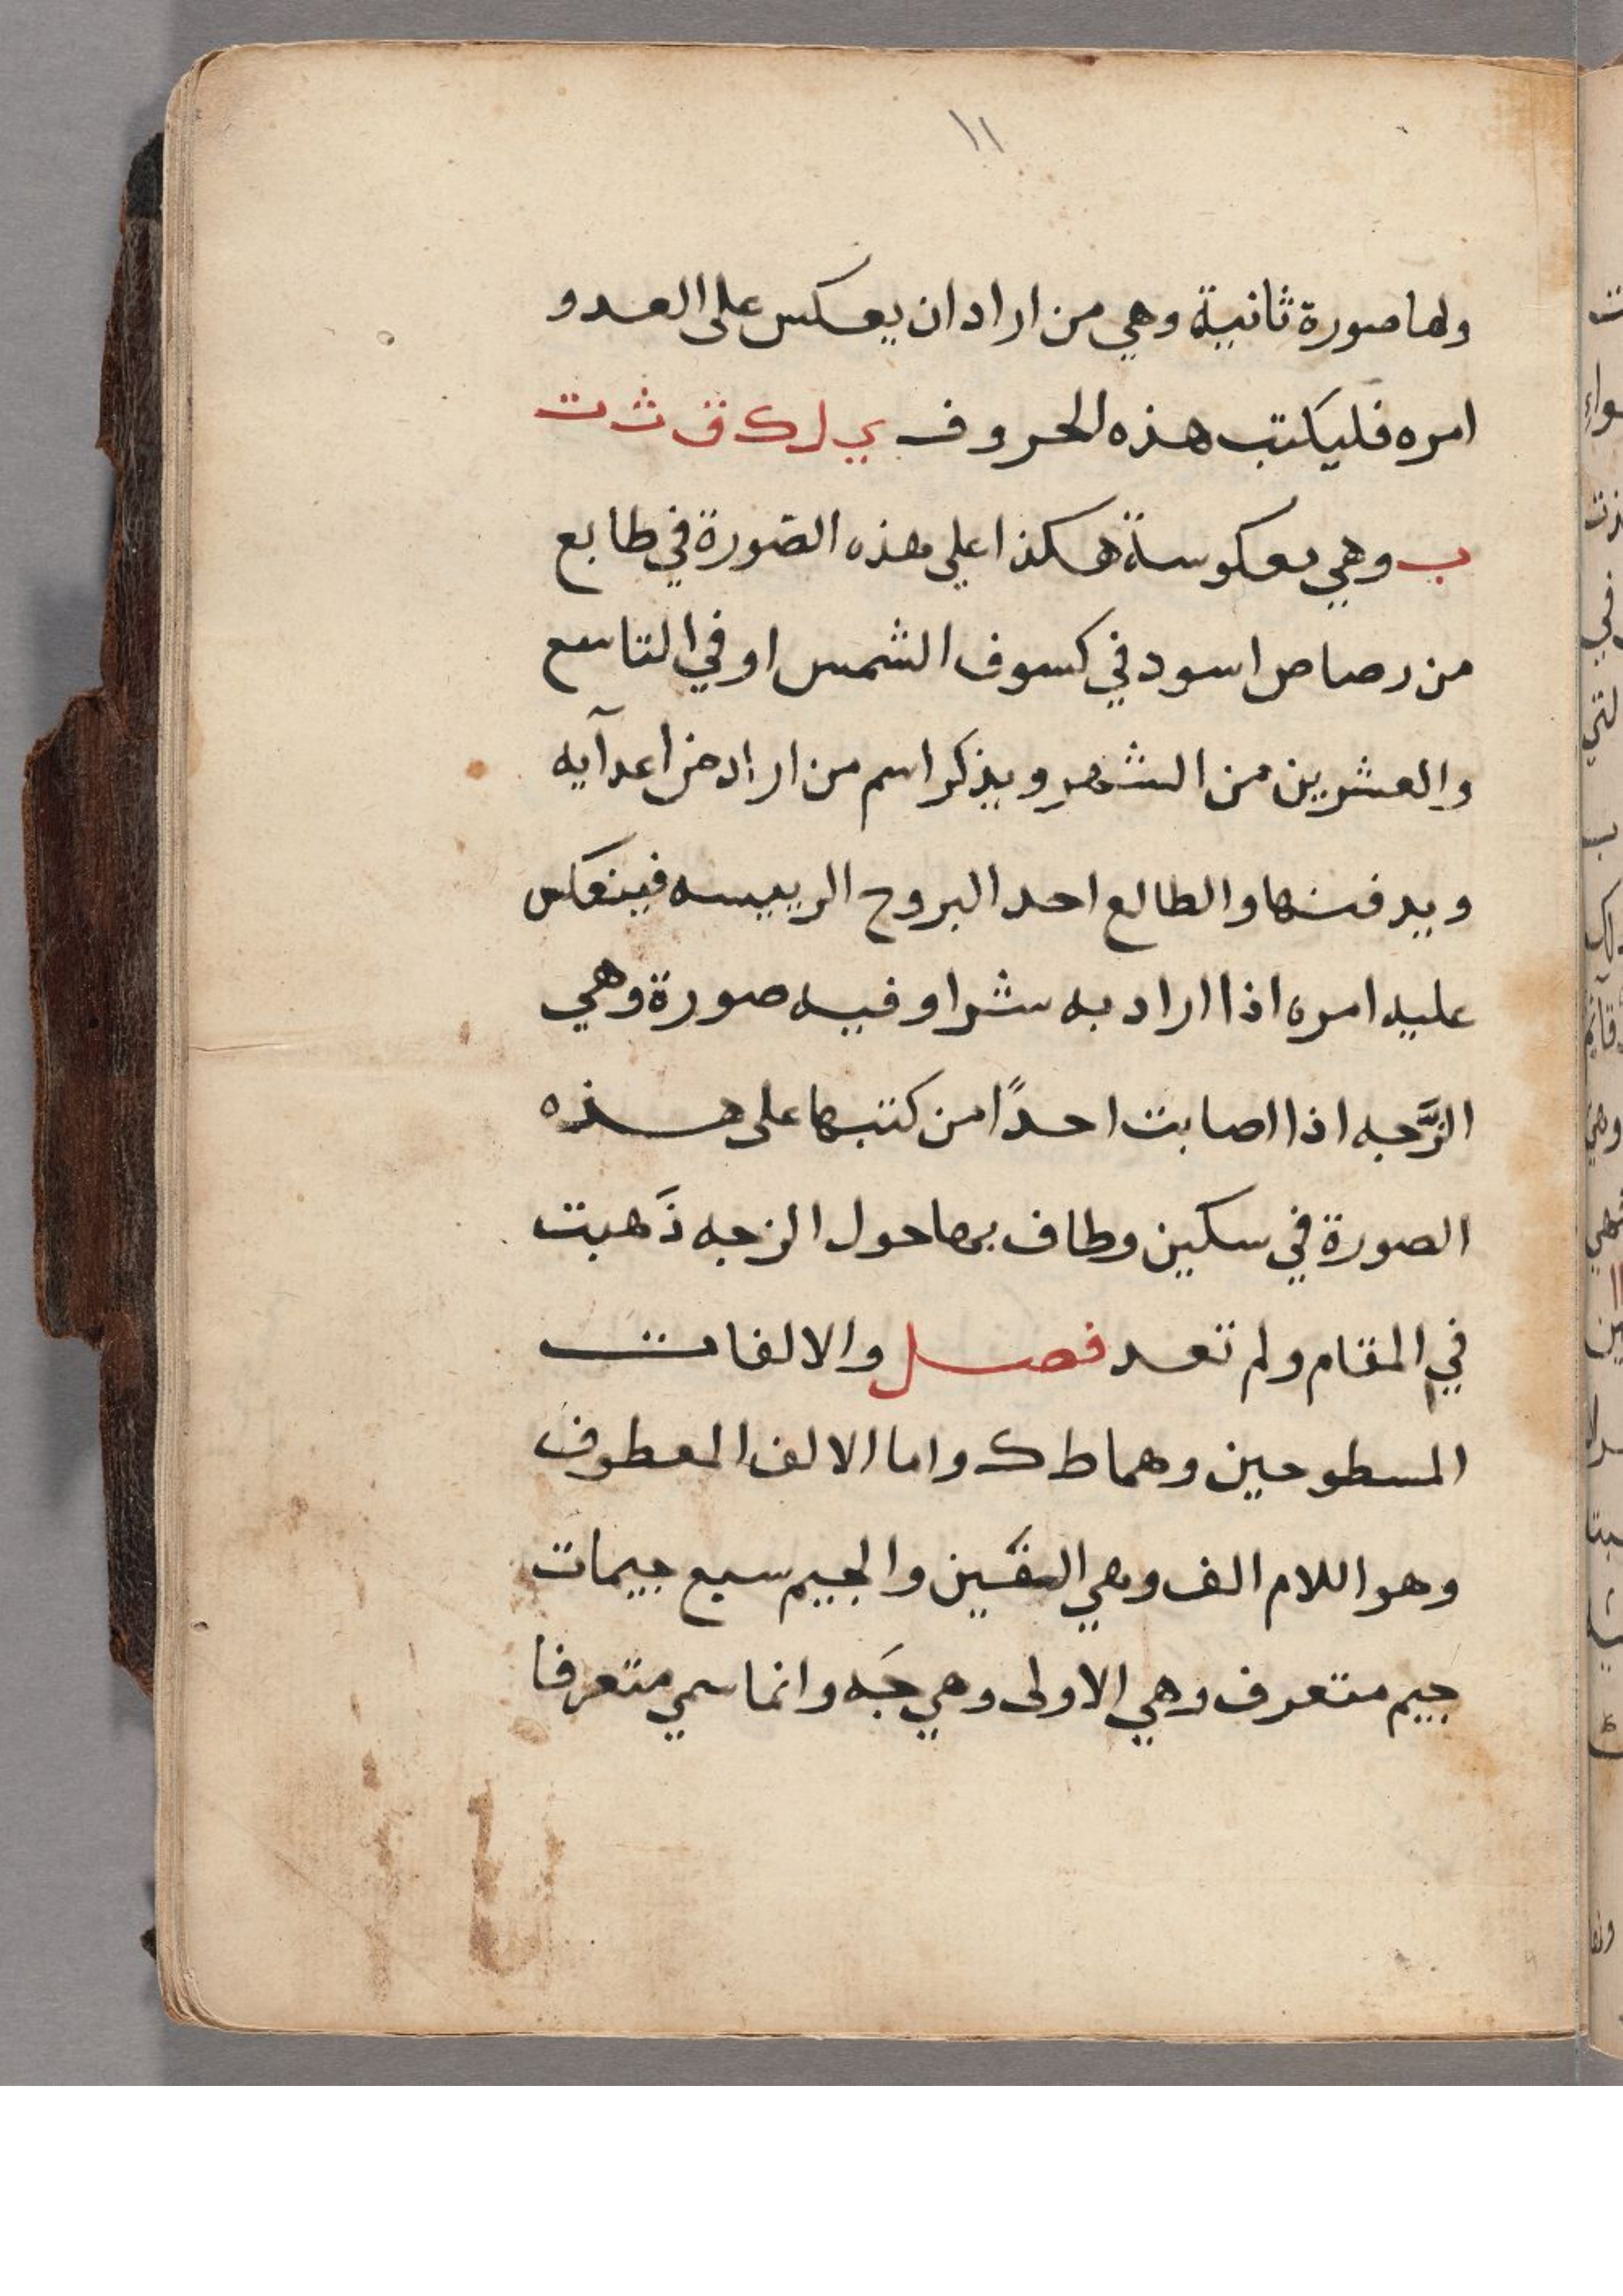 ١١
ولها صورة ثانية وهي من اراد ان يعكس على العدو
امره فليكتب هذه الحروف ي ل ك ق ث ت
ب وهي معكوسة هكذا على هذه الصورة في طابع
من رصاص اسود في كسوف الشمس او في التاسع
والعشرين من الشهر ويذكر اسم من اراد من اعدآيه
ويدفنها والطالع احد البروج الرييسه فينعكس
عليه امره اذا اراد به شرا وفيه صورة وهي
الزَّجه اذا اصابت احدًا من كتبها على هذه
الصورة في سكين وطاف بها حول الزجه ذَهبت
في المقام ولم تعد فصل والالفات
المسطوحين وهما ط ك واما الالف المعطوف
وهو اللام الف وهي والجيم سبع جيمات
جيم متعرف وهي الاولى وهي جَه وانما سمي متعرفا